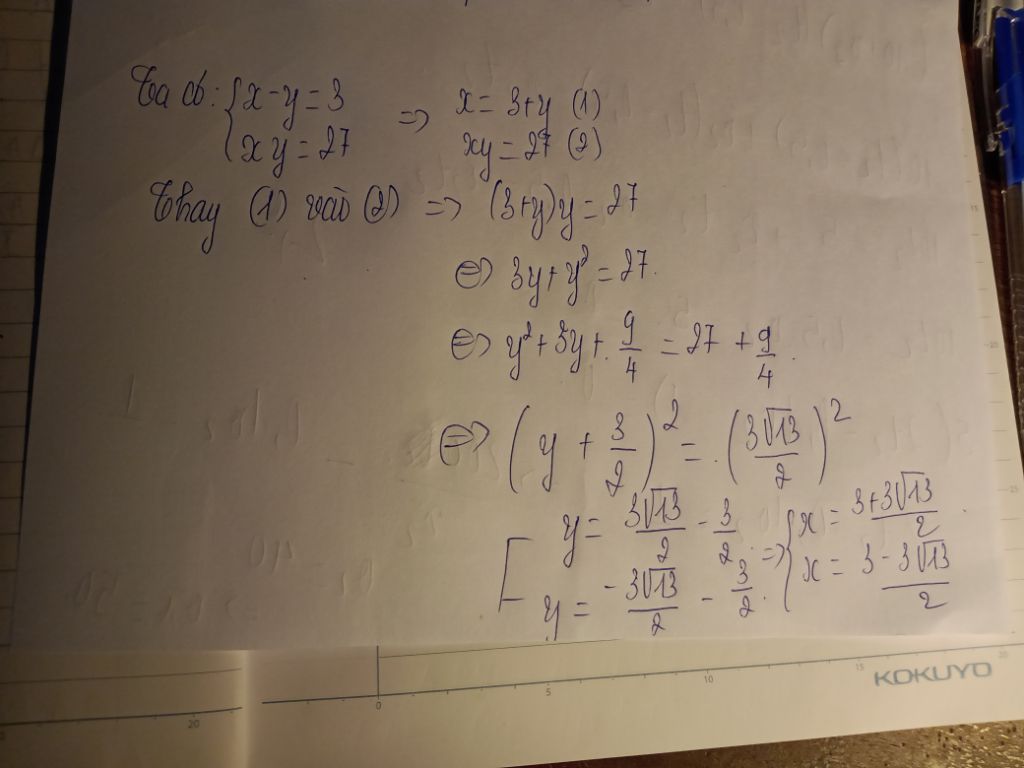 Ta có: { x - y = 3 => x = 3 + y (1)
{ xy = 27 xy = 27 (2)
Thay (1) vào (2) => (3+y)y = 27
<=> 3y + y² = 27.
<=> y² + 3y + 9/4 = 27 + 9/4.
<=> (y + 3/2)² = (3√13/2)²
[ y = 3√13/2 - 3/2 => { x = (3+3√13)/2
[ y = -3√13/2 - 3/2. { x = (3-3√13)/2
0 5 10 15 20
KOKUYO
20